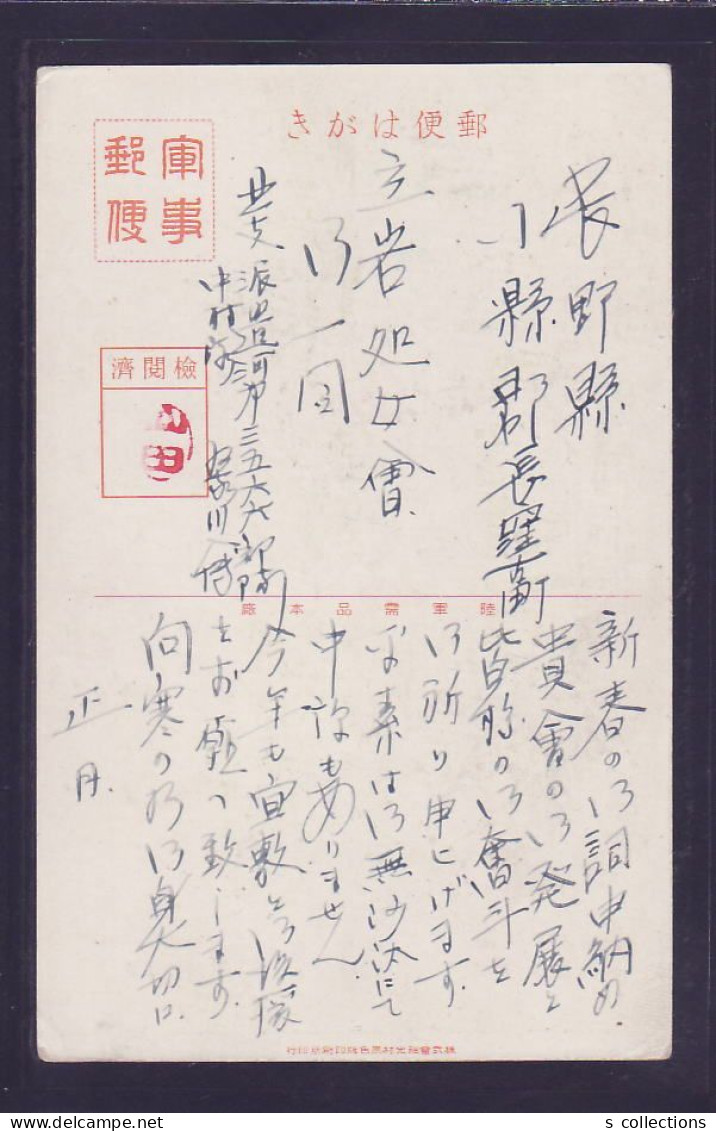 郵便はがき
軍事
郵便
檢閲濟
長野縣
小縣郡長窪古町
立岩処女會
御一同
北支派遣河第三五六六部隊
陸軍需品本廠
新春の御詞申納め
貴會の御発展と
皆様の御奮斗を
御祈り申上げます
平素は御無沙汰にて
申訳もありません
今年も宜敷く御後援
をお願い致します
向寒の折御身大切に
正月
s collections